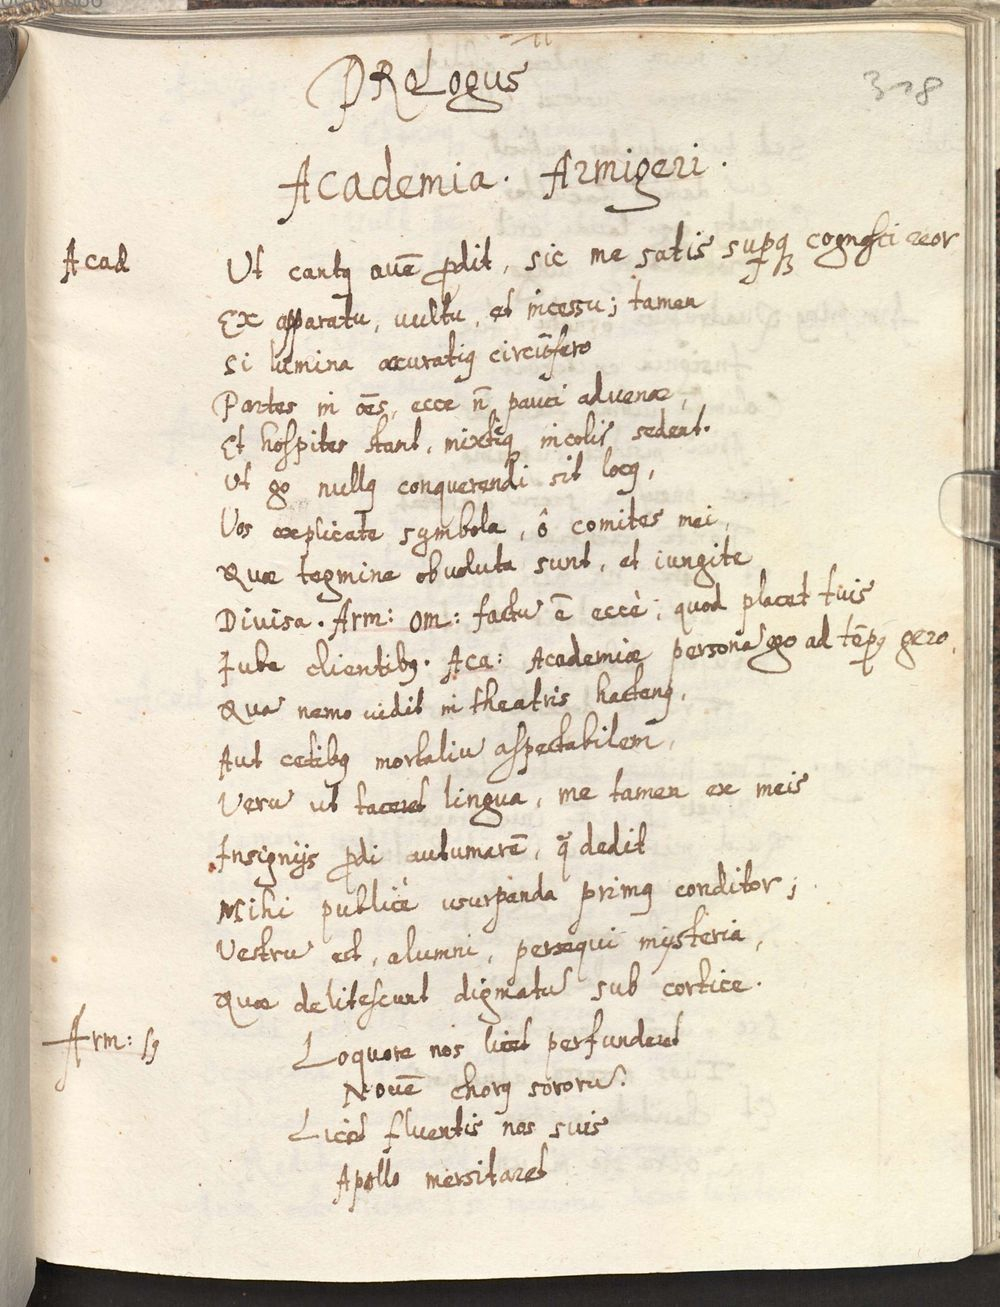 PRoLogus
318
Academia. Armigeri.
Acad Ut cantꝰ auē ꝓdit, sic me satis supꝙ cognosci reor
Ex apparatu, uultu, et incessu; tamen
Si lumina accuratiꝰ circūfero
Partes in oēs, ecce n̄ pauci aduenæ,
Et hospites stant, mixtiꝙ incolis sedent.
Ut go nullꝰ conquerendi sit locꝰ,
Uos explicate symbola, ô comites mei,
Quæ tegmine obuoluta sunt, et iungite
Diuisa. Arm: om: factū ē eccè; quod placet tuis
Jube clientibꝰ. Aca: Academiæ personā ego ad tēpꝰ gero,
Quā nemo uidit in theatris hactenꝰ,
Aut cetibꝰ mortaliū aspectabilem,
Verū ut taceret lingua, me tamen ex meis
Insignijs ꝓdi autumarē, q̄ dedit
Mihi publicè usurpanda primꝰ conditor;
Vestrū est, alumni, persequi mysteria,
Quæ delitescunt digmatū sub cortice.
Arm: 1ꝰ Loquore nos licet perfunderet
Nouē chorꝰ sororū.
Licet fluentis nos suis
Apollo mersitaret